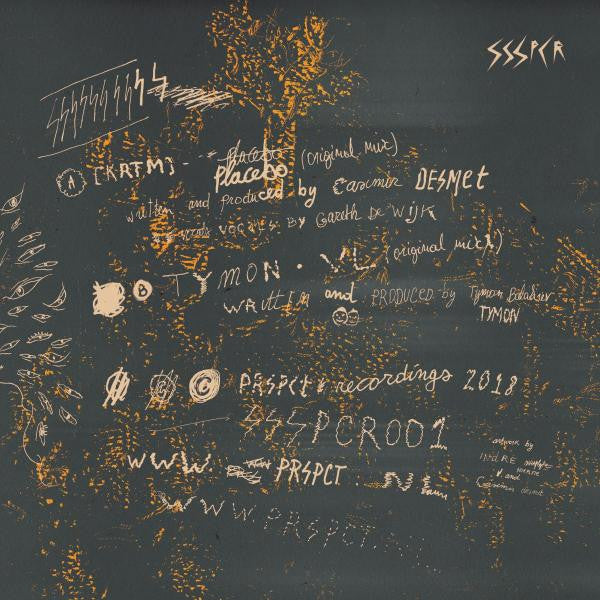 SSSPCR
A [KRTM] -- placebo (original mix)
placebo
written and produced by Casimir DESMET
VOCALS BY Gareth De Wijk
B TYMON • VL (original mix)
WRITTEN and PRODUCED by Tymon
TYMON
PRSPCT recordings 2018
SSSPCR001
WWW. PRSPCT . NL
WWW.PRSPCT.NL
artwork by
and
Casimir desmet